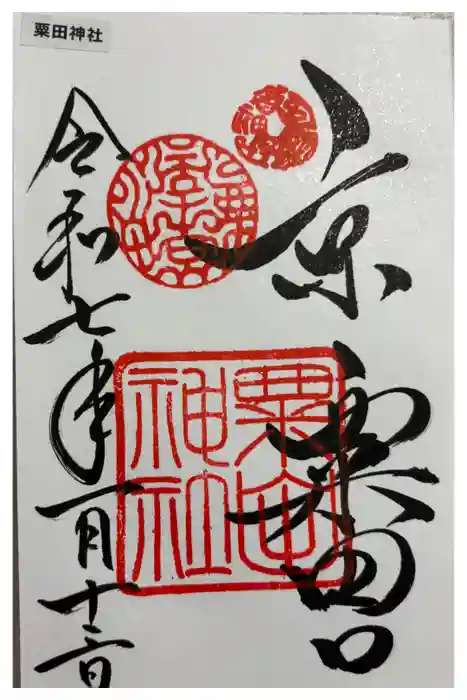 粟田神社
京
粟田口
令和七年一月十二日
粟田神社